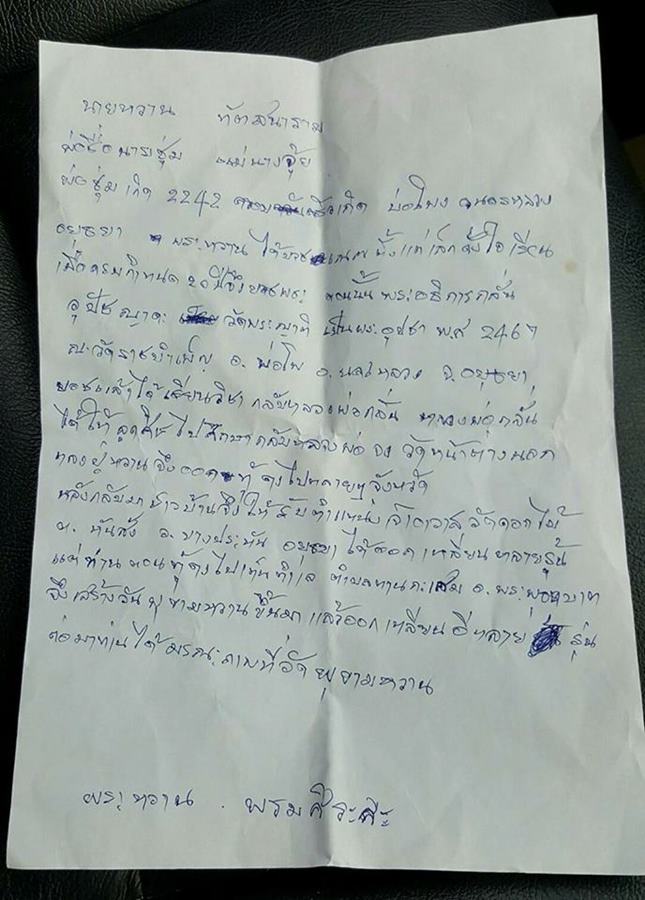 นายหวาน ทัตสนาราม
พ่อชื่อนายชุ่ม แม่นางจุ้ย
พ่อชุ่ม เกิด 2242 เกิด บ่อโพง นครหลวง
อยุธยา พระหวาน ได้บวชเณรตั้งแต่เล็กตั้งใจเรียน
เมื่อครบกำหนด ๒๐ปีจึงบวชพระ ตอนนั้นพระอธิการกลั่น
อุปัชญาคะ วัดพระญาติ เป็นพระอุปชา พ.ศ 2467
ณ.วัดราชบำเพ็ญ อ. พ่อโพ อ. นครหลวง จ.อยุธยา
บวชแล้วได้เรียนวิชา กลับหลวงพ่อกลั่น หลวงพ่อกลั่น
ได้ให้ลูกศิษไปศึกษากลับหลวงพ่อ จง วัดหน้าต่างนอก
หลวงปู่หวานจึงออกทุ้ดงไปหลายๆจังหวัด
หลังกลับมา ชาวบ้านจึงให้รับตำแหน่ง เจ้าอาวาส วัดดอกไม้
ต. หันสัง อ. บางประหัน อยุธยา ได้ออก เหลียนหลายรุ้น
แต่ท่าน ตอนทุ้ดงไปเห็นทำเล ตำบลทานกะเสม อ. พระพุทบาท
จึงสร้างวันพุขามหวานขึ้นมา แล้วออกเหลียนอีหลาย รุ่น
ต่อมาท่านได้มรณะภาพที่วัดพุขามหวาน
พระหวาน พรม